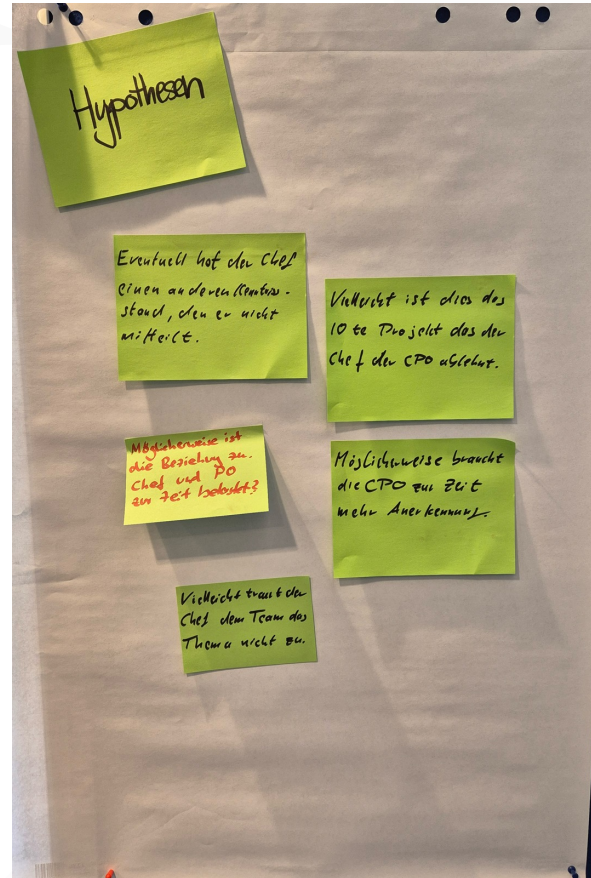 Hypothesen
Eventuell hat der Chef
einen anderen Kenntnis-
stand, den er nicht
mitteilt.
Vielleicht ist dies das
10 te Projekt das der
Chef der CPO ablehnt.
Möglicherweise ist
die Beziehung zw.
Chef und PO
zur Zeit belastet?
Möglicherweise braucht
die CPO zur Zeit
mehr Anerkennung.
Vielleicht traut der
Chef dem Team das
Thema nicht zu.